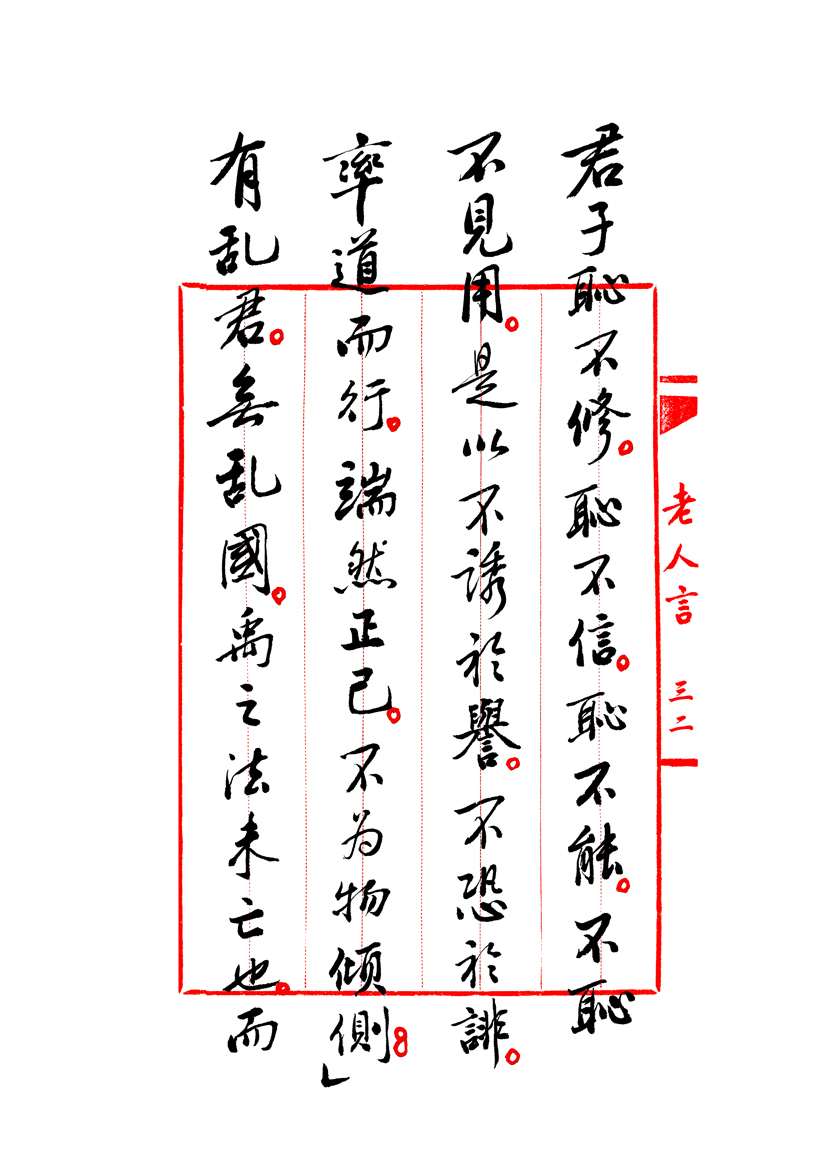 君子恥不修。恥不信。恥不能。不恥
不見用。是以不誘於譽。不恐於誹。
率道而行。端然正己。不为物傾側。」
有乱君。無乱國。禹之法未亡也。而
老人言 三二